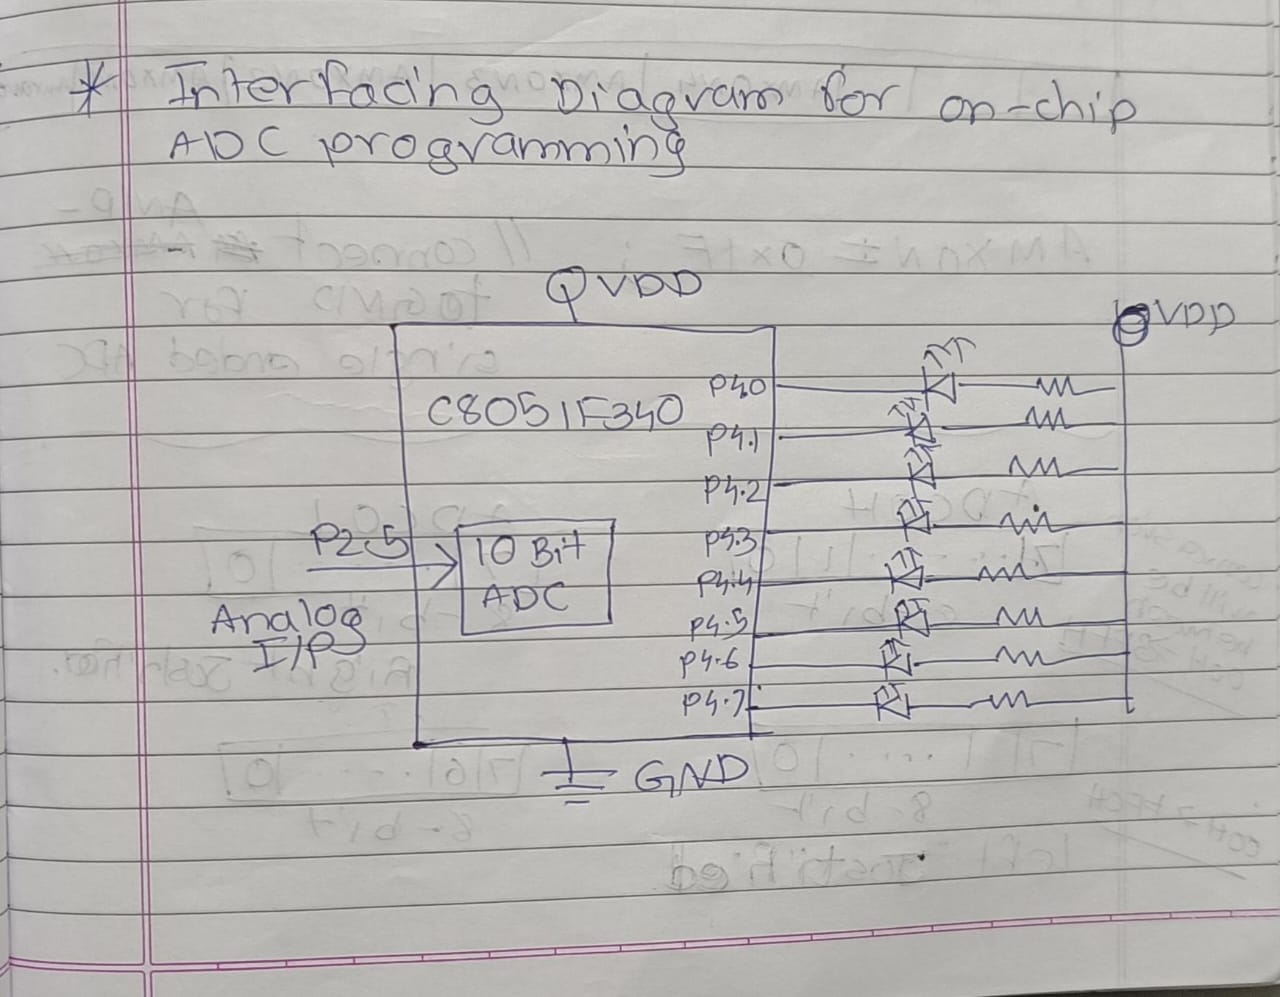 * Interfacing Diagram for on-chip
ADC programming
VDD
VDD
C8051F340
P4.0
P4.1
P4.2
P4.3
P4.4
P4.5
P4.6
P4.7
P2.5
10 Bit
ADC
Analog
I/P
GND